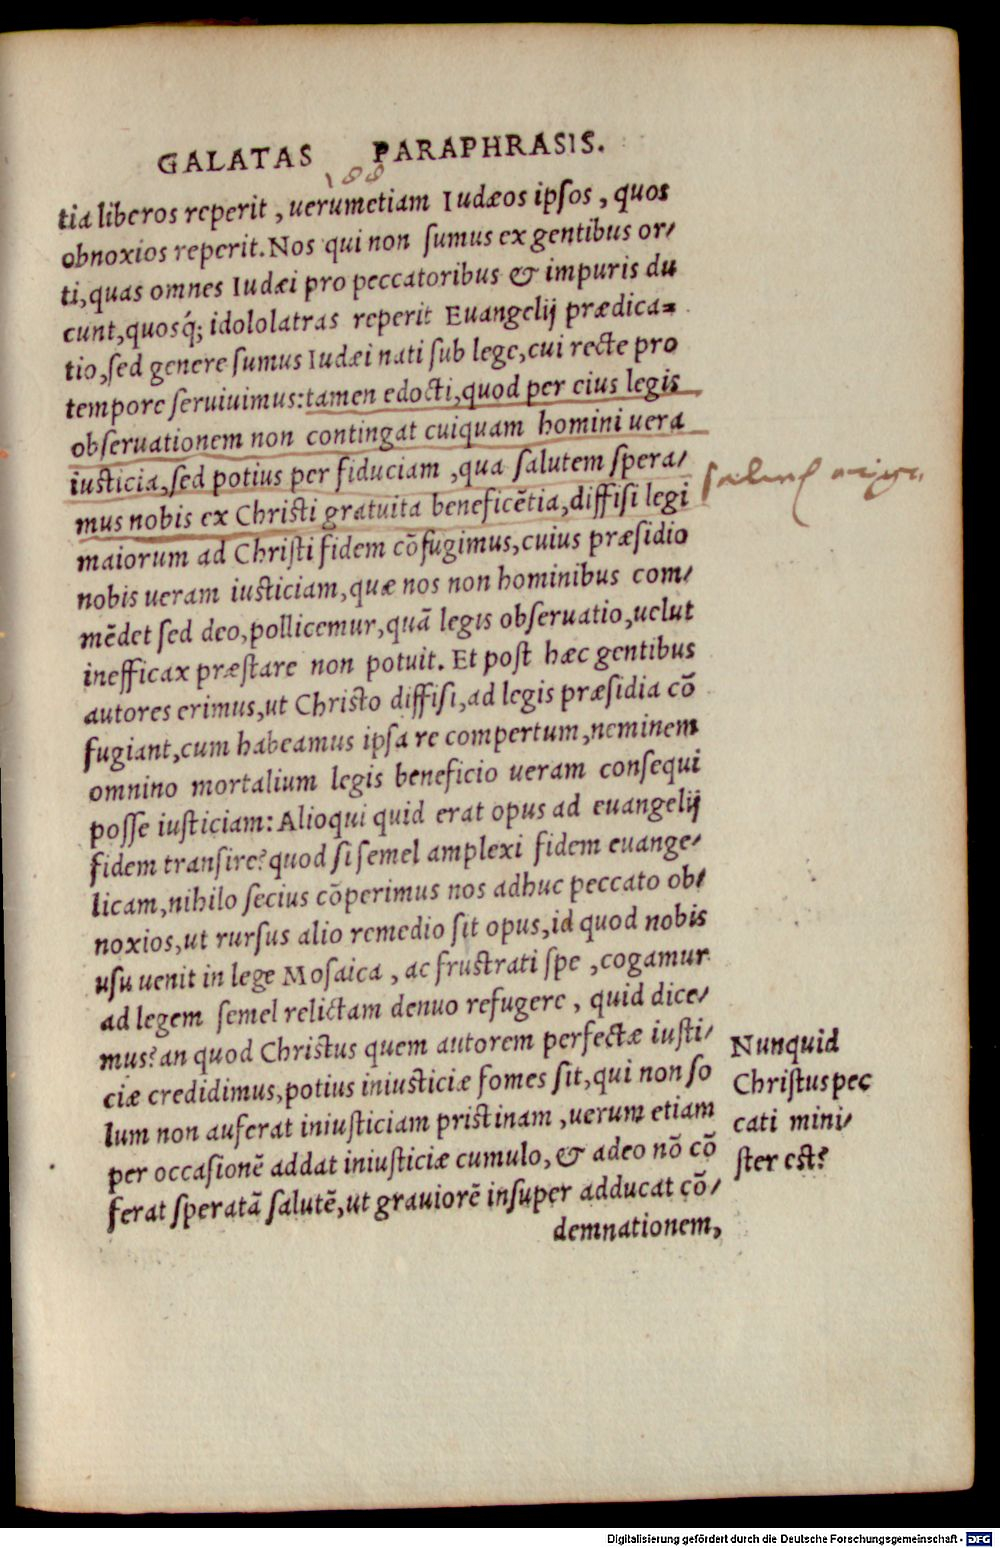 GALATAS PARAPHRASIS.
188
tia liberos reperit, uerumetiam Iudæos ipsos, quos
obnoxios reperit. Nos qui non sumus ex gentibus or/
ti, quas omnes Iudæi pro peccatoribus & impuris du
cunt, quosq́; idololatras reperit Euangelij prædica=
tio, sed genere sumus Iudæi nati sub lege, cui recte pro
tempore seruiuimus: tamen edocti, quod per eius legis
obseruationem non contingat cuiquam homini uera
iusticia, sed potius per fiduciam, qua salutem spera/
mus nobis ex Christi gratuita beneficẽtia, diffisi legi
maiorum ad Christi fidem cõfugimus, cuius præsidio
nobis ueram iusticiam, quæ nos non hominibus com/
mẽdet sed deo, pollicemur, quã legis obseruatio, uelut
inefficax præstare non potuit. Et post hæc gentibus
autores erimus, ut Christo diffisi, ad legis præsidia cõ
fugiant, cum habeamus ipsa re compertum, neminem
omnino mortalium legis beneficio ueram consequi
posse iusticiam: Alioqui quid erat opus ad euangelij
fidem transire? quod si semel amplexi fidem euange/
licam, nihilo secius cõperimus nos adhuc peccato ob/
noxios, ut rursus alio remedio sit opus, id quod nobis
usu uenit in lege Mosaica, ac frustrati spe, cogamur
ad legem semel relictam denuo refugere, quid dice/
mus? an quod Christus quem autorem perfectæ iusti/
ciæ credidimus, potius iniusticiæ fomes sit, qui non so
lum non auferat iniusticiam pristinam, uerum etiam
per occasionẽ addat iniusticiæ cumulo, & adeo nõ cõ
ferat speratã salutẽ, ut grauiorẽ insuper adducat cõ/
demnationem,
Nunquid
Christus pec
cati mini/
ster est?
Digitalisierung gefördert durch die Deutsche Forschungsgemeinschaft - DFG